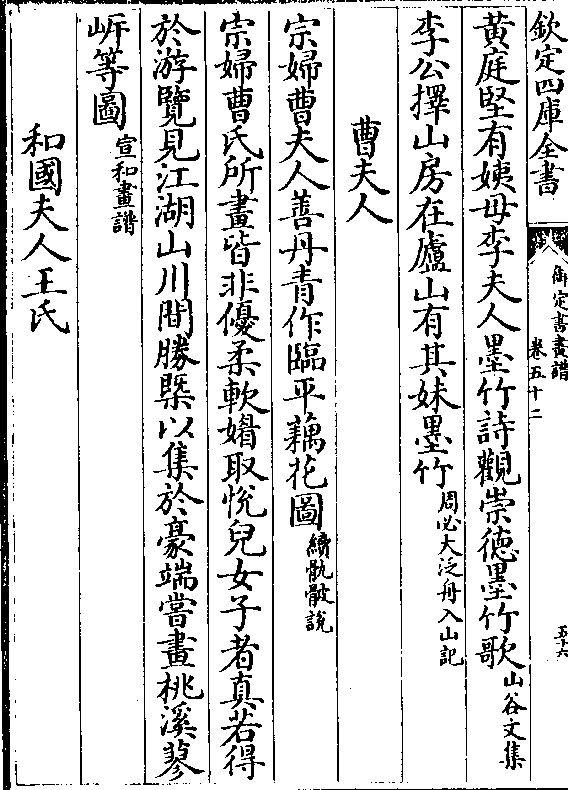 欽定四庫全書
御定書畫譜
卷五十二
五十六
黄庭堅有姨母李夫人墨竹詩觀崇德墨竹歌山谷文集
李公擇山房在廬山有其妹墨竹周必大泛舟入山記
曹夫人
宗婦曹夫人善丹青作臨平藕花圖續骫骳說
宗婦曹氏所畫皆非優柔軟媚取悅兒女子者真若得
於游覽見江湖山川間勝槩以集於豪端嘗畫桃溪蓼
㟁等圖宣和畫譜
和國夫人王氏